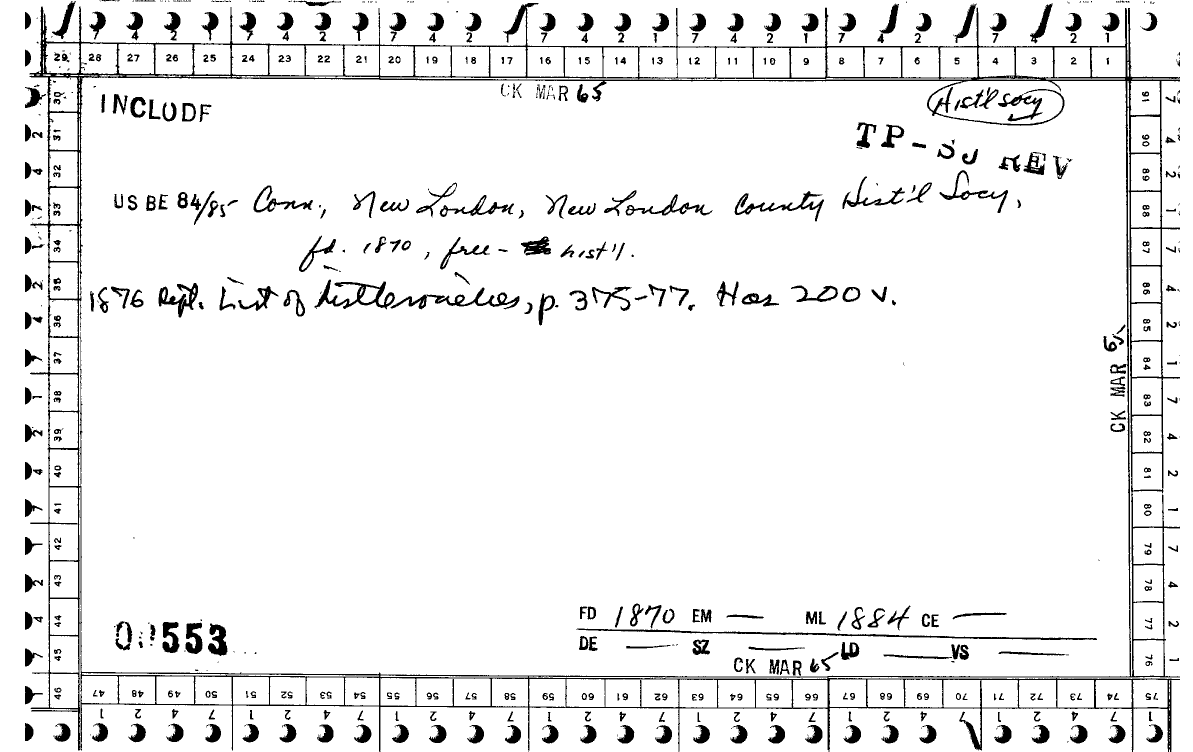 7 4 2 1 7 4 2 1 7 4 2 1 7 4 2 1 7 4 2 1 7 4 2 1 7 4 2 1
29 28 27 26 25 24 23 22 21 20 19 18 17 16 15 14 13 12 11 10 9 8 7 6 5 4 3 2 1
CK MAR 65
INCLUDE
Hist'l socy
TP-SJ REV
US BE 84/85 Conn., New London, New London County Hist'l Socy,
fd. 1870, free- hist'l.
1876 Rept. List of histlsocieties, p. 375-77. Has 200 v.
CK MAR 65
00553
FD 1870 EM — ML 1884 CE —
DE — SZ — LD — VS —
CK MAR 65
30 31 32 33 34 35 36 37 38 39 40 41 42 43 44 45 46
91 90 89 88 87 86 85 84 83 82 81 80 79 78 77 76 75
47 48 49 50 51 52 53 54 55 56 57 58 59 60 61 62 63 64 65 66 67 68 69 70 71 72 73 74 75
1 2 4 7 1 2 4 7 1 2 4 7 1 2 4 7 1 2 4 7 1 2 4 7 1 2 4 7